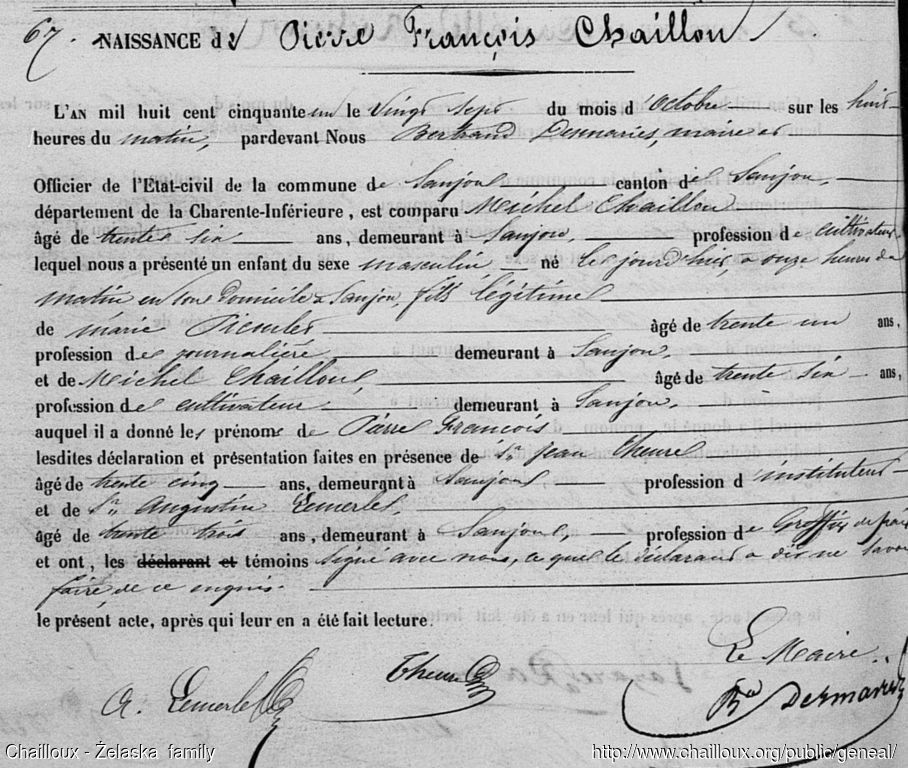 67. NAISSANCE de Pierre François Chaillou
L'AN mil huit cent cinquante un le vingt sept du mois d'octobre sur les huit
heures du matin, pardevant Nous Bertrand Desmaries, maire et
Officier de l'Etat-civil de la commune de Saujon canton de Saujon,
département de la Charente-Inférieure, est comparu Michel Chaillou
âgé de trente six ans, demeurant à Saujon, profession de cultivateur
lequel nous a présenté un enfant du sexe masculin né le jourd'hier, à onze heures du
matin en son domicile à Saujon, fils légitime
de marie âgé de trente un ans,
profession de journalière, demeurant à Saujon,
et de Michel Chaillou, âgé de trente six ans,
profession de cultivateur demeurant à Saujon,
auquel il a donné les prénoms de Pierre François
lesdites déclaration et présentation faites en présence de Sr. Jean Theure
âgé de trente cinq ans, demeurant à Saujon profession d'instituteur
et de Sr. Augustin Lemerle,
âgé de trente trois ans, demeurant à Saujon, profession de Greffier de paix
et ont, les déclarant et témoins signé avec nous, ce que le déclarant a dit ne savoir
faire, de ce enquis.
le présent acte, après qui leur en a été fait lecture.
Le Maire.
A. Lemerle Theure Bd Desmaries
Chailloux - Żelaska family http://www.chailloux.org/public/geneal/